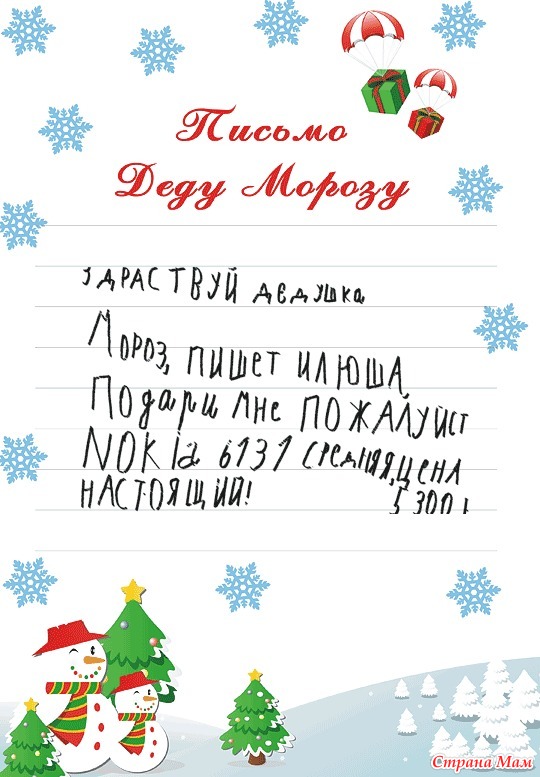 Письмо
Деду Морозу
ЗДРАСТВУЙ ДЕДУШКА
МОРОЗ, ПИШЕТ ИЛЮША,
ПОДАРИ МНЕ ПОЖАЛУЙСТ
NOKIA 6131 СРЕДНЯЯ,ЦЕНА
НАСТОЯЩИЙ! 5 300
Страна Мам